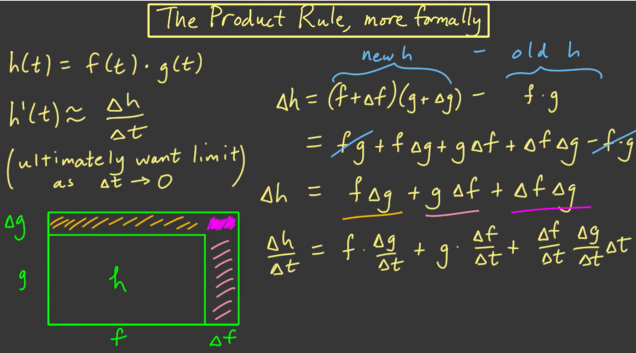 The Product Rule, more formally
h(t) = f(t) · g(t)
h'(t) ≈ Δh/Δt
(ultimately want limit
as Δt → 0)
new h - old h
Δh = (f+Δf)(g+Δg) - f·g
= fg + fΔg + gΔf + ΔfΔg - f·g
Δh = fΔg + gΔf + ΔfΔg
Δh/Δt = f · Δg/Δt + g · Δf/Δt + Δf/Δt Δg/Δt Δt
Δg
g
h
f
Δf